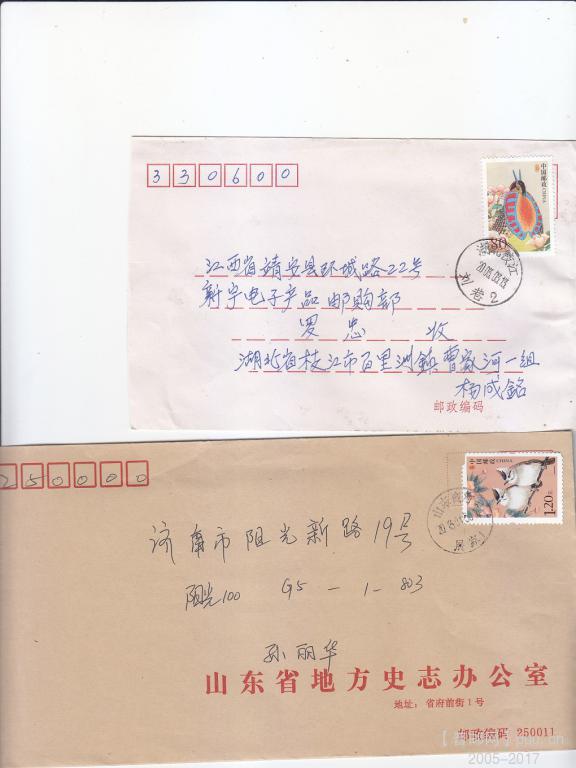 330600
中国邮政
CHINA
80
江西省靖安县环城路22号
新宇电子产品邮购部
罗忠 收
湖北省枝江市百里洲鎮曹家河一组
杨成銘
邮政编码
250000
中国邮政 CHINA
1.20元
济南市阳光新路19号
阳光100 G5-1-803
孙丽华
山东省地方史志办公室
地址：省府前街1号
邮政编码 250011
2005-2017